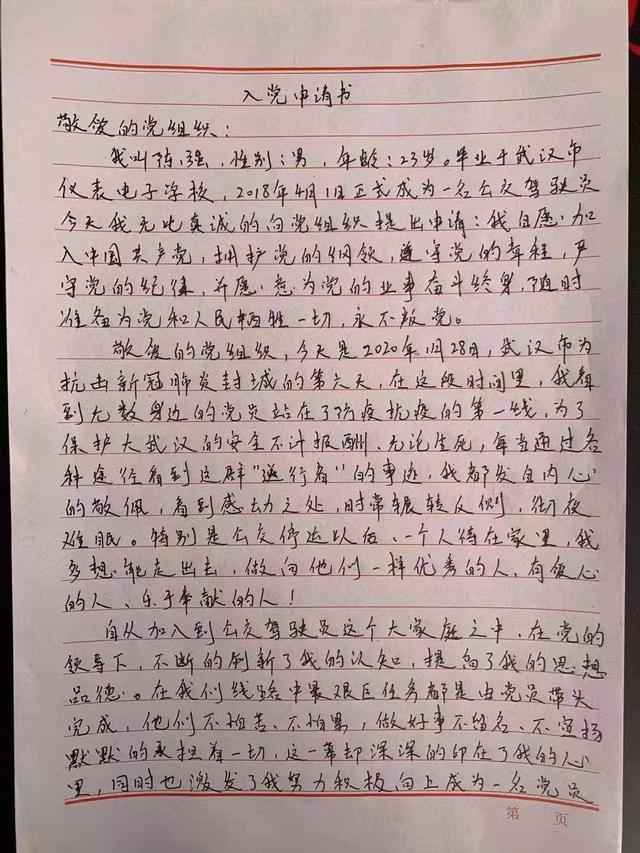 入党申请书
敬爱的党组织：
我叫陈强，性别：男，年龄：23岁。毕业于武汉市
仪表电子学校，2018年4月1日正式成为一名公交驾驶员
今天我无比真诚的向党组织提出申请：我自愿加
入中国共产党，拥护党的纲领，遵守党的章程，严
守党的纪律，并愿意为党的业事奋斗终身，随时
准备为党和人民牺牲一切，永不叛党。
敬爱的党组织，今天是2020年1月28日，武汉市为
抗击新冠肺炎封城的第六天，在这段时间里，我看
到无数身边的党员站在了防疫抗疫的第一线，为了
保护大武汉的安全不计报酬、无论生死，每当通过各
种途径看到这群“逆行者”的事迹，我都发自内心
的敬佩，看到感动之处，时常辗转反侧，彻夜
难眠。特别是公交停运以后、一个人待在家里，我
多想能走出去，做向他们一样优秀的人、有爱心
的人、乐于奉献的人！
自从加入到公交驾驶员这个大家庭之中，在党的
领导下，不断的刷新了我的认知，提高了我的思想
品德。在我们线路中最艰巨任务都是由党员带头
完成，他们不怕苦、不怕累，做好事不留名、不宣扬
默默的承担着一切，这一幕却深深的印在了我的心
里，同时也激发了我努力积极向上成为一名党员
第 页